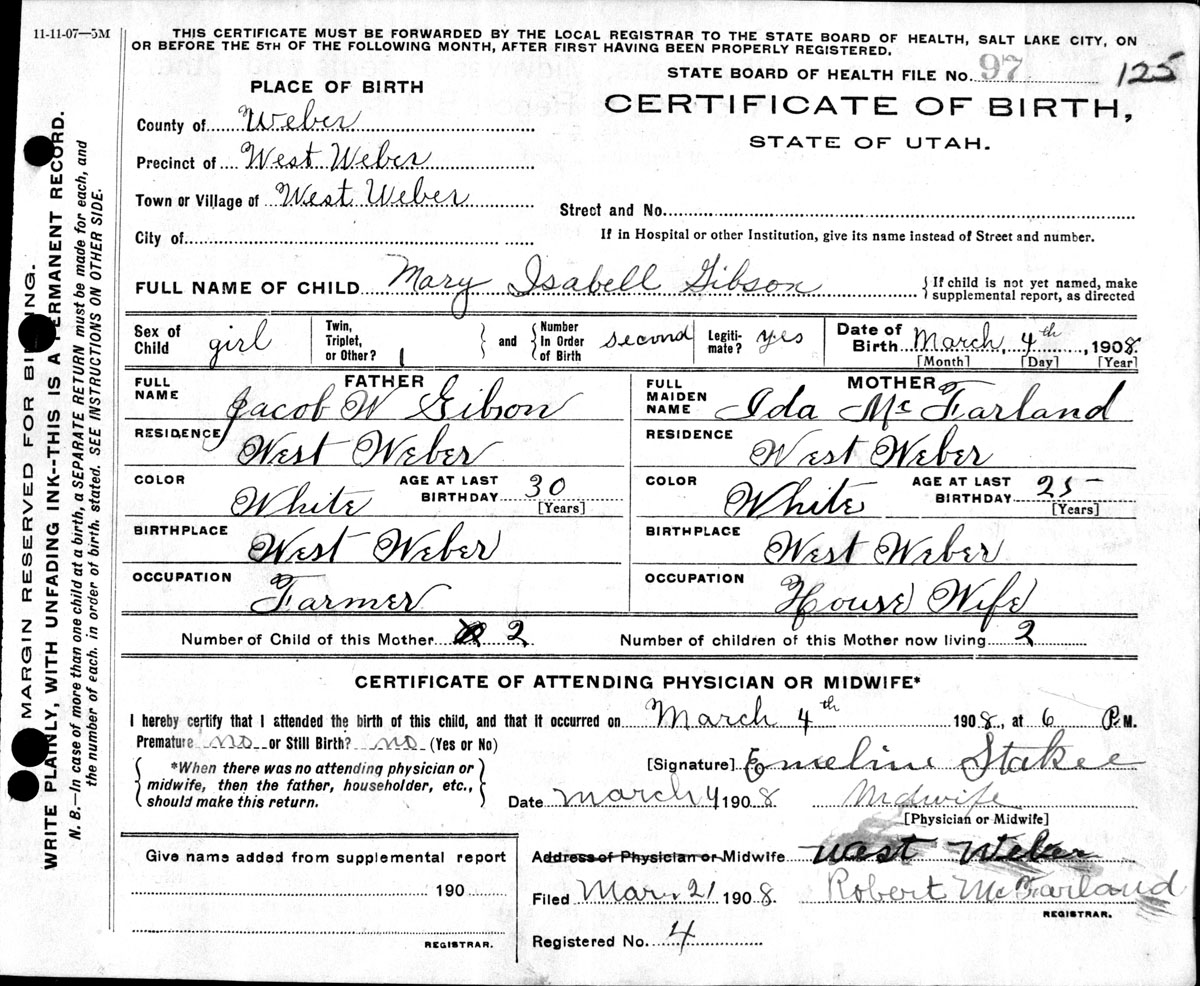 11-11-07—5M
THIS CERTIFICATE MUST BE FORWARDED BY THE LOCAL REGISTRAR TO THE STATE BOARD OF HEALTH, SALT LAKE CITY, ON
OR BEFORE THE 5TH OF THE FOLLOWING MONTH, AFTER FIRST HAVING BEEN PROPERLY REGISTERED.
STATE BOARD OF HEALTH FILE No. 97 125
PLACE OF BIRTH
CERTIFICATE OF BIRTH,
STATE OF UTAH.
County of Weber
Precinct of West Weber
Town or Village of West Weber
Street and No.
City of
If in Hospital or other Institution, give its name instead of Street and number.
FULL NAME OF CHILD Mary Isabell Gibson {If child is not yet named, make supplemental report, as directed
Sex of Child girl Twin, Triplet, or Other? 1 } and { Number In Order of Birth second Legiti-mate? yes Date of Birth March, 4th, 1908.
[Month] [Day] [Year]
FATHER
FULL NAME Jacob W Gibson
RESIDENCE West Weber
COLOR White AGE AT LAST BIRTHDAY 30 [Years]
BIRTHPLACE West Weber
OCCUPATION Farmer
MOTHER
FULL MAIDEN NAME Ida Mc Farland
RESIDENCE West Weber
COLOR White AGE AT LAST BIRTHDAY 25 [Years]
BIRTHPLACE West Weber
OCCUPATION House Wife
Number of Child of this Mother 2 Number of children of this Mother now living 2
CERTIFICATE OF ATTENDING PHYSICIAN OR MIDWIFE*
I hereby certify that I attended the birth of this child, and that it occurred on March 4th 1908, at 6 P.M.
Premature no or Still Birth? no (Yes or No)
{ *When there was no attending physician or
midwife, then the father, householder, etc.,
should make this return. }
[Signature] Emeline Stakee
Date March 4 1908 Midwife
[Physician or Midwife]
Give name added from supplemental report
190
REGISTRAR.
Address of Physician or Midwife West Weber
Filed Mar. 21 1908. Robert McFarland
REGISTRAR.
Registered No. 4
MARGIN RESERVED FOR BINDING.
WRITE PLAINLY, WITH UNFADING INK--THIS IS A PERMANENT RECORD.
N. B.—In case of more than one child at a birth, a SEPARATE RETURN must be made for each, and
the number of each, in order of birth, stated. SEE INSTRUCTIONS ON OTHER SIDE.